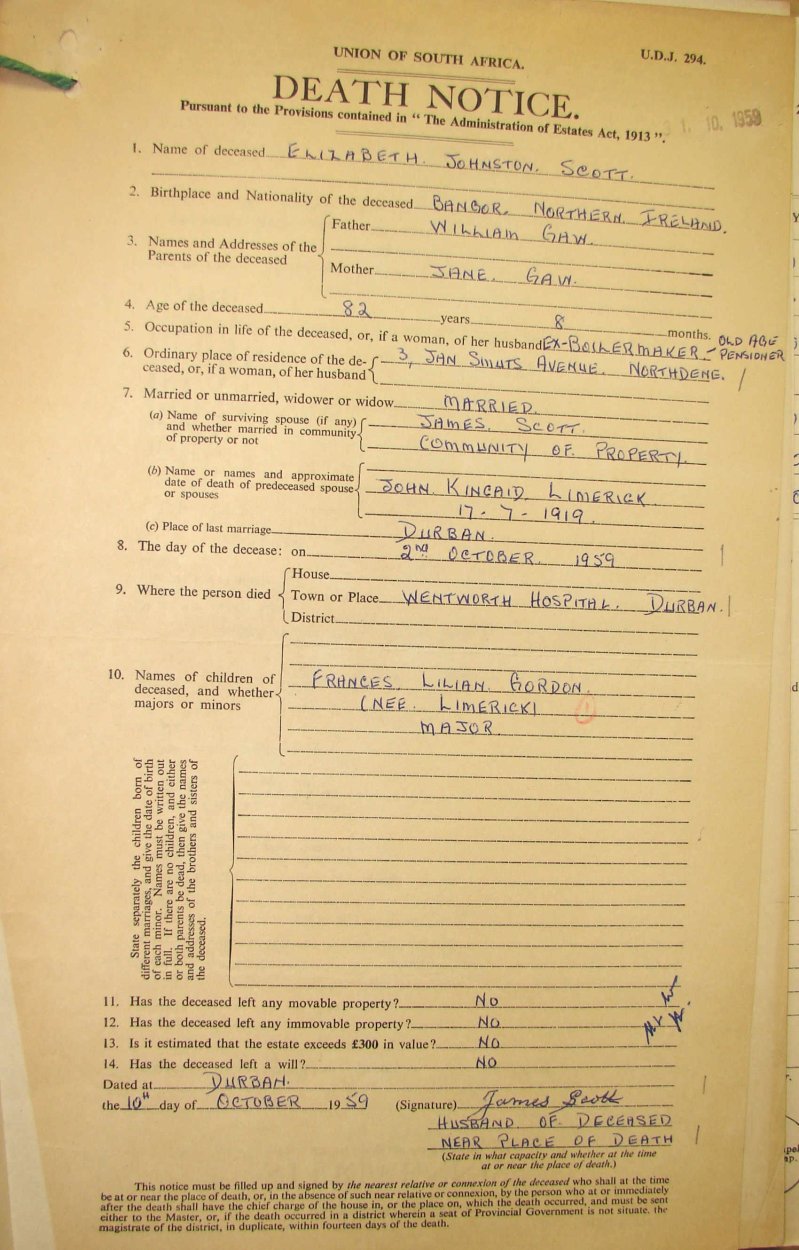 UNION OF SOUTH AFRICA.
U.D.J. 294.
DEATH NOTICE.
Pursuant to the Provisions contained in “ The Administration of Estates Act, 1913 ”.
10. 1959
1. Name of deceased ELIZABETH. JOHNSTON. SCOTT.
2. Birthplace and Nationality of the deceased BANGOR. NORTHERN IRELAND.
3. Names and Addresses of the Parents of the deceased
Father WILLIAM GAW.
Mother JANE. GAW.
4. Age of the deceased 82 years 8 months.
5. Occupation in life of the deceased, or, if a woman, of her husband EX-BOILERMAKER - OLD AGE PENSIONER
6. Ordinary place of residence of the de-
ceased, or, if a woman, of her husband
3, JAN SMUTS AVENUE. NORTHDENE.
7. Married or unmarried, widower or widow MARRIED.
(a) Name of surviving spouse (if any)
and whether married in community
of property or not
JAMES. SCOTT.
COMMUNITY OF PROPERTY.
(b) Name or names and approximate
date of death of predeceased spouse
or spouses
JOHN KINCAID LIMERICK
17-7-1919.
(c) Place of last marriage DURBAN.
8. The day of the decease: on 2nd OCTOBER. 1959
9. Where the person died
House
Town or Place WENTWORTH HOSPITAL. DURBAN.
District
10. Names of children of
deceased, and whether
majors or minors
FRANCES LILIAN GORDON.
(NEE. LIMERICK)
MAJOR
State separately the children born of
different marriages, and give the date of birth
of each minor. Names must be written out
in full. If there are no children, and either
or both parents be dead, then give the names
and addresses of the brothers and sisters of
the deceased.
11. Has the deceased left any movable property? NO
12. Has the deceased left any immovable property? NO.
13. Is it estimated that the estate exceeds £300 in value? NO.
14. Has the deceased left a will? NO
Dated at DURBAN.
the 10TH day of OCTOBER 1959 (Signature) James Scott
HUSBAND OF DECEASED
NEAR PLACE OF DEATH
(State in what capacity and whether at the time
at or near the place of death.)
This notice must be filled up and signed by the nearest relative or connexion of the deceased who shall at the time
be at or near the place of death, or, in the absence of such near relative or connexion, by the person who at or immediately
after the death shall have the chief charge of the house in, or the place on, which the death occurred, and must be sent
either to the Master, or, if the death occurred in a district wherein a seat of Provincial Government is not situate, the
magistrate of the district, in duplicate, within fourteen days of the death.